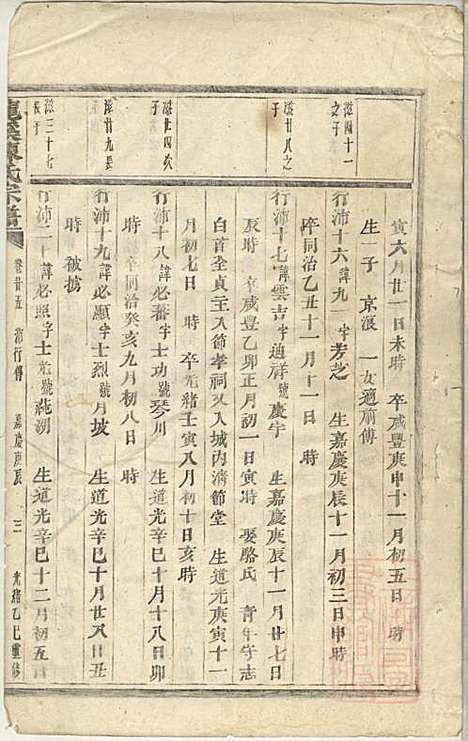 寅六月廿一日未時 卒咸豐庚申十一月初五日 時
生一子 京滾 一女適前傳
滋四十一之子
行沛十六諱九一字芳芝 生嘉慶庚辰十一月初三日申時
卒同治乙丑十一月十一日 時
滋廿八之子
行沛十七諱雲吉字迪祥號慶宇 生嘉慶庚辰十一月廿七日
辰時 卒咸豐乙卯正月初一日寅時 娶駱氏 青年守志
白首全貞主入節孝祠又入城內清節堂 生道光庚寅十一
月初七日 時 卒光緒壬寅八月初十日亥時
滋廿四次子
行沛十八諱必蕃字士功號琴川 生道光辛巳十月十八日卯
時 卒同治癸亥九月初八日 時
滋廿九長子
行沛十九諱必顯字士烈號月坡 生道光辛巳十月廿八日丑
時 被擄
滋三十七長子
行沛二十諱必照字士光號純湖 生道光辛巳十二月初五日
陳氏宗譜
卷廿五 沛行傳 嘉慶庚辰 三 光緒乙巳重修